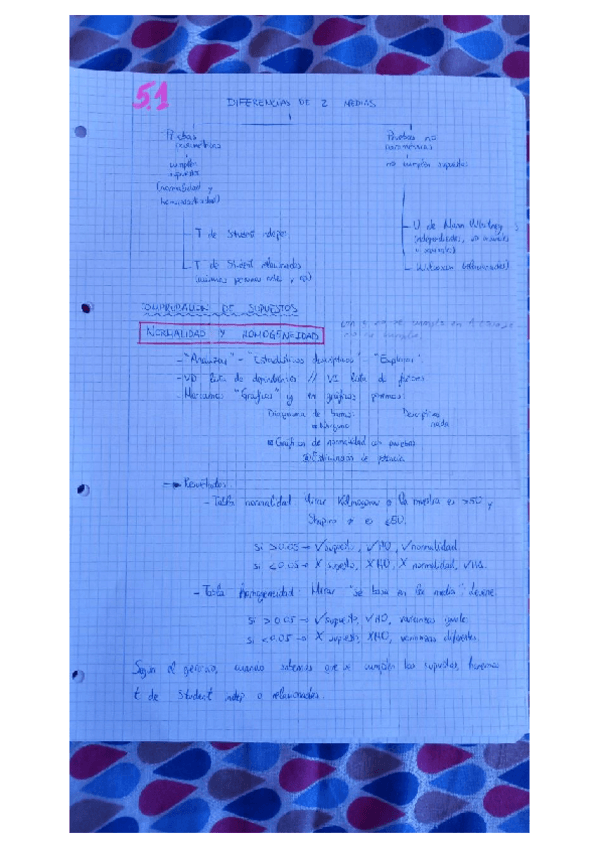 5.1
DIFERENCIAS DE 2 MEDIAS
Pruebas paramétricas
Pruebas no paramétricas
cumplen supuestos
no cumplen supuestos
(normalidad y
homocedasticidad)
- T de Student indep.
- U de Mann Whitney
(independientes,
- T de Student relacionados
- Wilcoxon (relacionados)
COMPROBACIÓN DE SUPUESTOS
NORMALIDAD Y HOMOGENEIDAD
- "Analizar" - "Estadísticos descriptivos" - "Explorar".
- VD lista de dependientes // VI lista de factores.
- Marcamos "Gráficos" y en gráficos ponemos:
Diagrama de barras: Descriptivos
ninguno nada
Gráficos de normalidad con pruebas
Estimación de potencia
→ Resultados:
- Tabla normalidad: Mirar Kolmogorov si la muestra es >50 y
Shapiro si es <50.
Si >0.05 → ✓ supuesto, ✓ H0, ✓ normalidad
Si <0.05 → X supuesto, X H0, X normalidad,
- Tabla homogeneidad: Mirar "se basa en la media"; Levene.
Si >0.05 → ✓ supuesto, ✓ H0, varianzas iguales
Si <0.05 → X supuesto, X H0, varianzas diferentes.
Según el género, cuando sabemos que se cumplen los supuestos, hacemos
t de Student indep o relacionados.